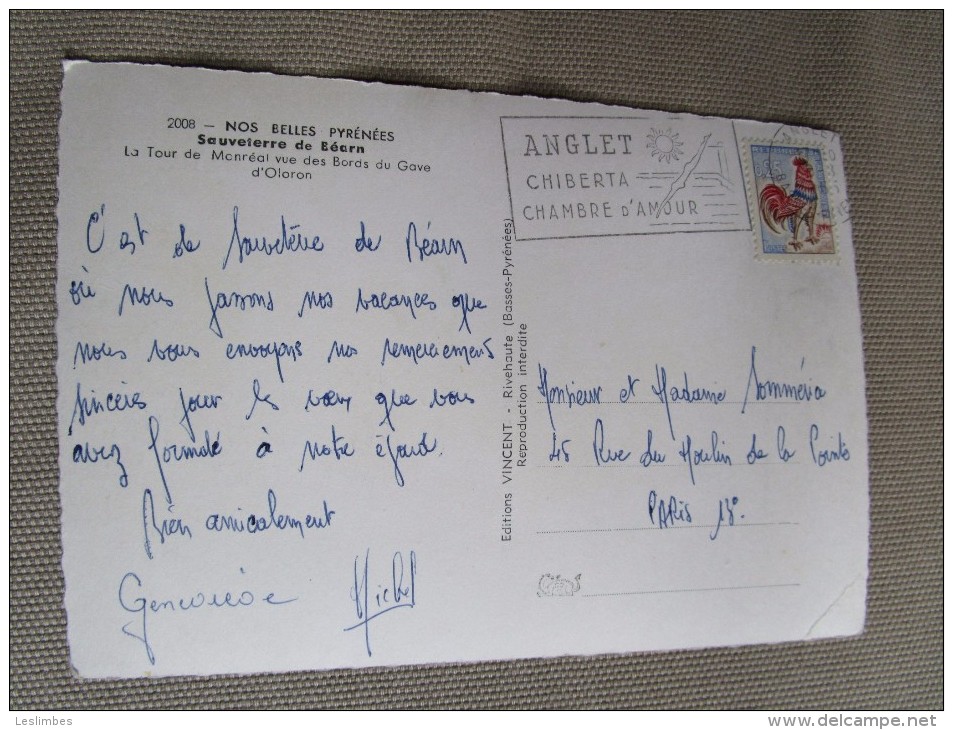 2008 — NOS BELLES PYRÉNÉES
Sauveterre de Béarn
La Tour de Monréal vue des Bords du Gave
d'Oloron
C'est de Sauveterre de Béarn
où nous passons nos vacances que
nous vous envoyons nos remerciements
sincères pour les vœux que vous
avez formulé à notre égard.
Bien amicalement
Geneviève Michel
Editions VINCENT - Rivehaute (Basses-Pyrénées)
Reproduction interdite
ANGLET
CHIBERTA
CHAMBRE D'AMOUR
Monsieur et Madame
45 Rue du Moulin de la Pointe
PARIS 13e.
Leslimbes
www.delcampe.net